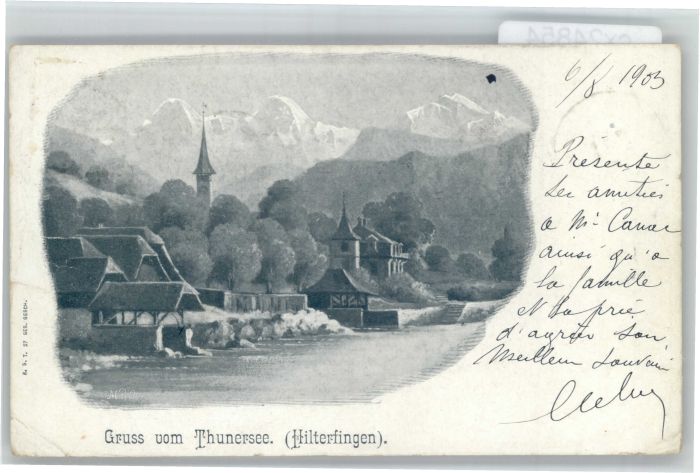 6/8 1903
Présente
ses amitiés
à Mr
ainsi qu'à
sa famille
et la prie
d'agréer son
meilleur souvenir
Gruss vom Thunersee. (Hilterfingen).